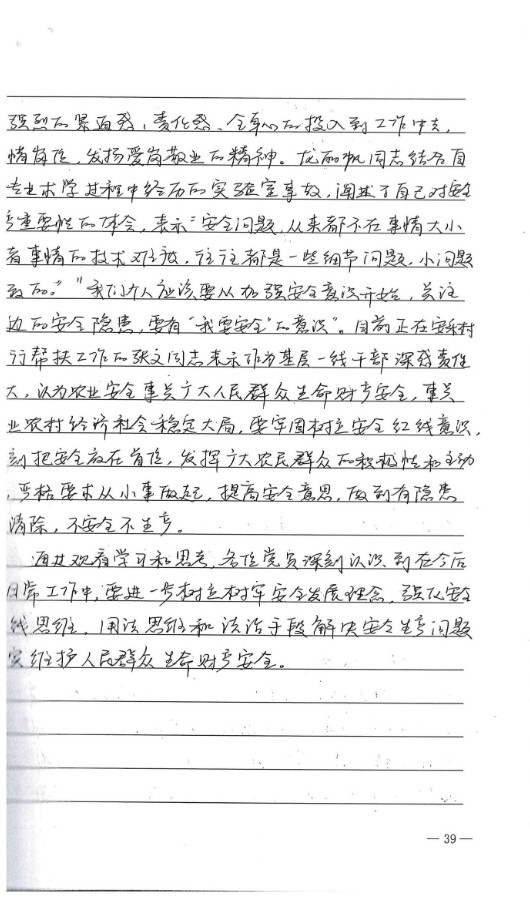 强烈的紧迫感，责任感、全身心的投入到工作中去，
情岗位，发扬爱岗敬业的精神。龙丽帆同志结合自
专业求学过程中经历的实验室事故，阐述了自己对安全
产重要性的体会，表示"安全问题，从来都不在事情大小
看事情的技术难度，往往都是一些细节问题，小问题
致的。""我们个人应该要从加强安全意识开始，关注
边的安全隐患，要有"我要安全"的意识"。目前正在安乐村
行帮扶工作的张文同志表示作为基层一线干部深感责任
大，认为农业安全事关广大人民群众生命财产安全，事关
业农村经济社会稳定大局，要牢固树立安全红线意识，
刻把安全放在首位，发挥广大农民群众的积极性和主动
，严格要求从小事做起，提高安全意思，做到有隐患
清除，不安全不生产。
通过观看学习和思考，各位党员深刻认识到在今后
日常工作中，要进一步树立树牢安全发展理念，强化安全
线思维，用法思维和法治手段解决安全生产问题
实维护人民群众生命财产安全。
— 39 —